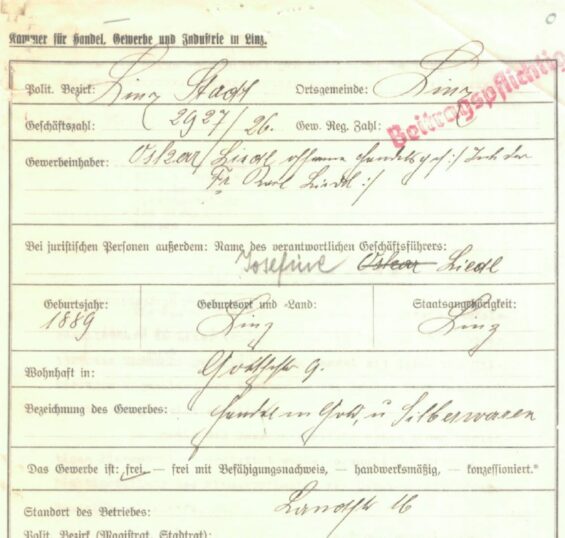 Kammer für Handel, Gewerbe und Industrie in Linz.
Beitragspflichtig
Polit. Bezirk: Linz Stadt Ortsgemeinde: Linz
Geschäftszahl: 2927/26. Gew. Reg. Zahl:
Gewerbeinhaber: Oskar Liedl offene Handelsges :/ Inh. der
Fr Karl Liedl :/
Bei juristischen Personen außerdem: Name des verantwortlichen Geschäftsführers:
Josefine Oskar Liedl
Geburtsjahr: Geburtsort und -Land: Staatsangehörigkeit:
1889 Linz Linz
Wohnhaft in: 9.
Bezeichnung des Gewerbes: Handel m Gold, u Silberwaren
Das Gewerbe ist: frei, — frei mit Befähigungsnachweis, — handwerksmäßig, — konzessioniert.*
Standort des Betriebes: Landstr 16
Polit. Bezirk (Magistrat, Stadtrat):